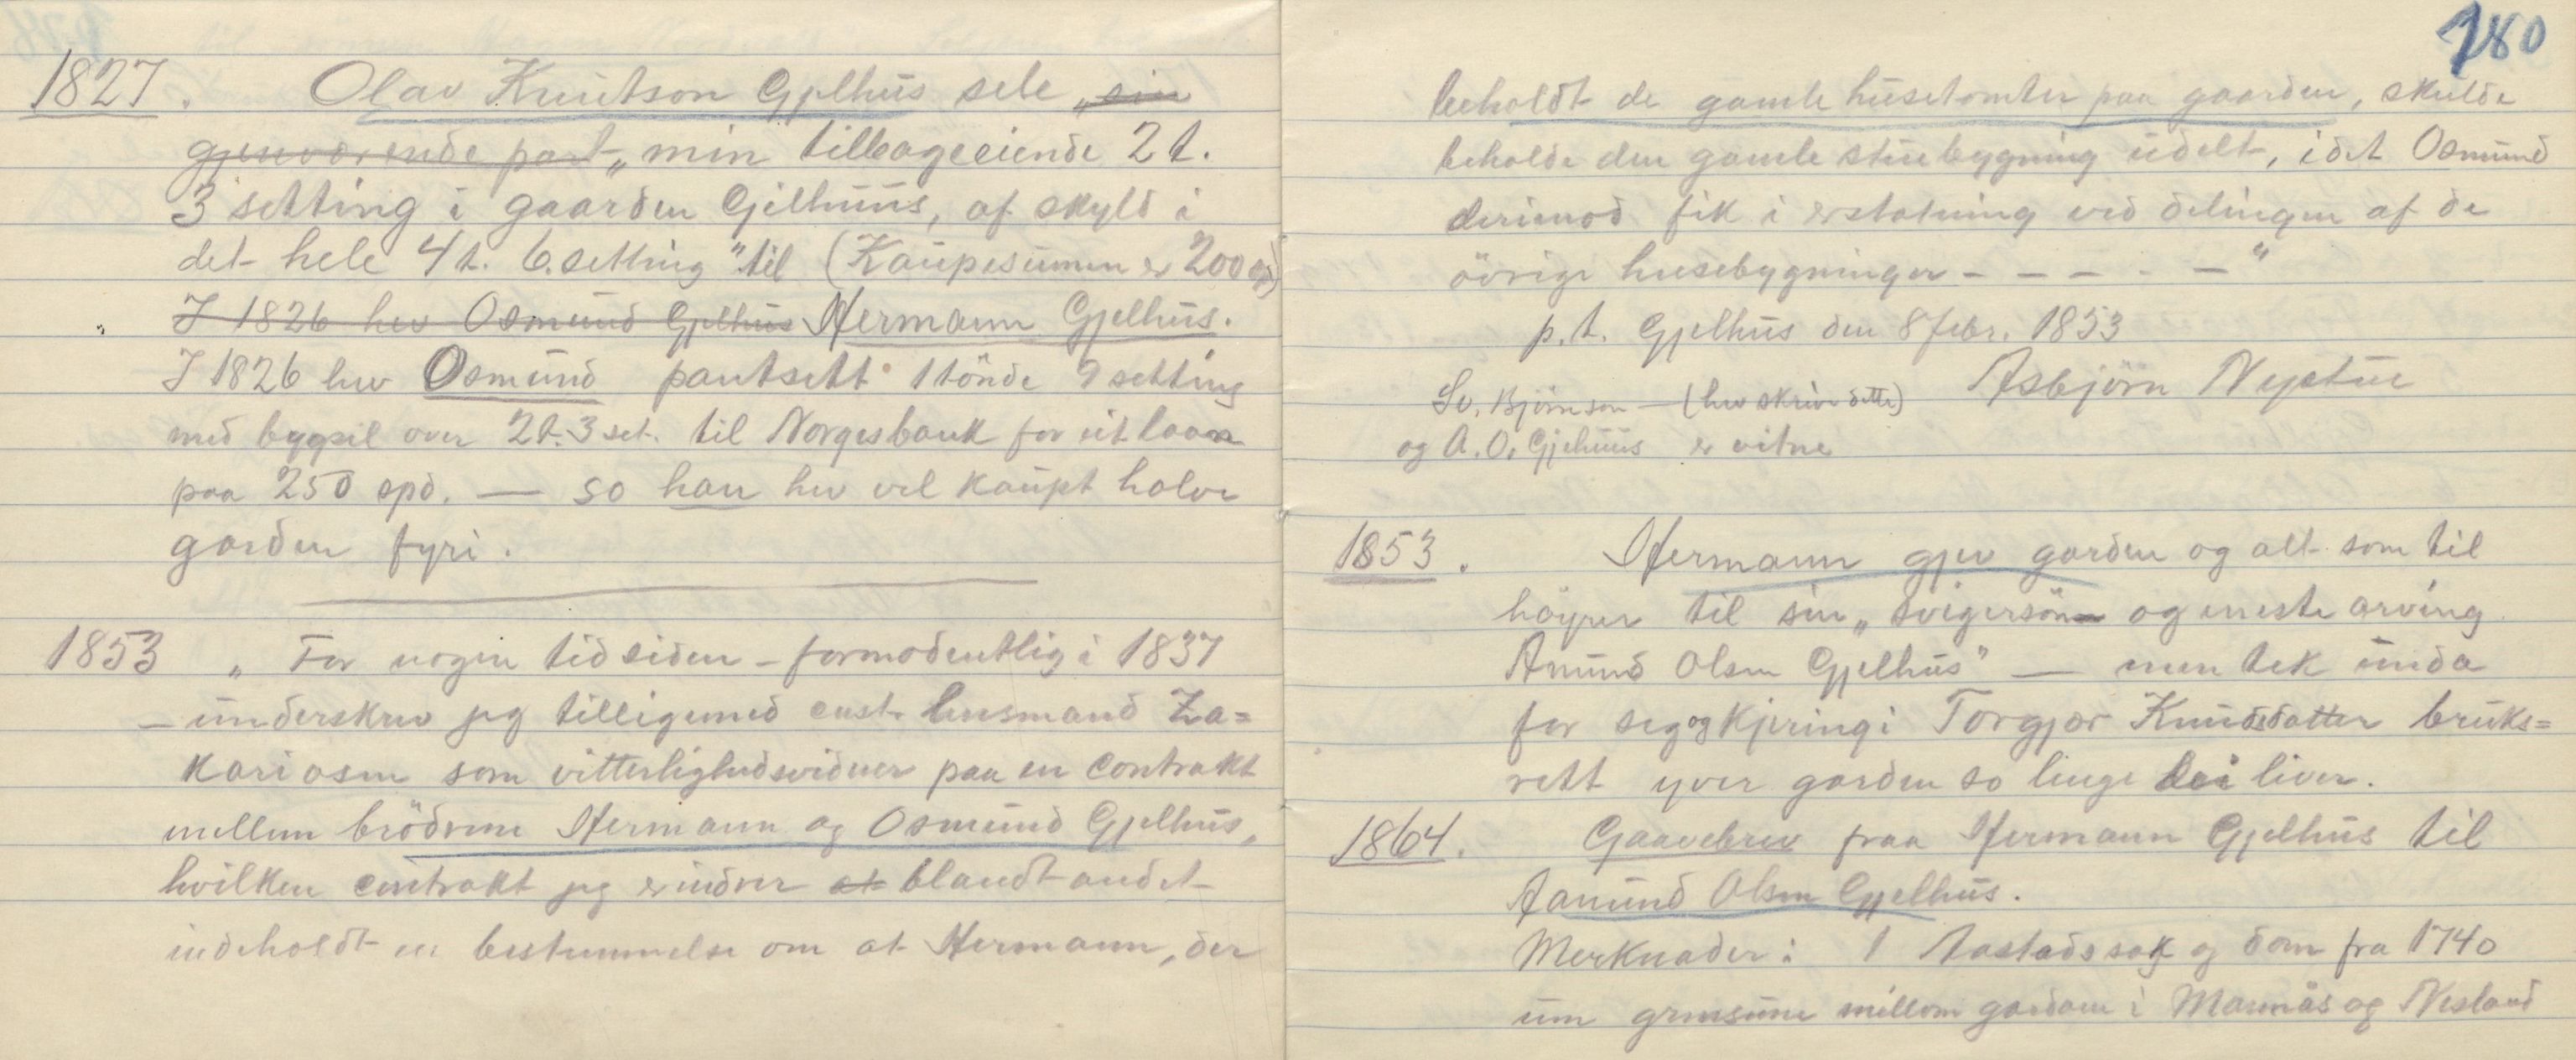 1827. Olav Knutson Gjelhus sele „sin
gjenværende part „min tilbageeiende 2 t.
3 setting i gaarden Gjelhuus, af skyld i
det hele 4 t. 6. setting" til (Kaupesummen er 200 spd)
I 1826 hev Osmund Gjelhus Hermann Gjelhus.
I 1826 hev Osmund pantsett 1 tönde 9 setting
med bygsel over 2 t. 3 set. til Norgesbank for eit laan
paa 250 spd. — so han hev vel kaupt halve
garden fyri.
1853 „For nogen tid siden - formodentlig i 1837
- underskrev jeg tilligemed husmand Za=
kariasen som vitterlighedsvidner paa en contrakt
mellem brödrene Hermann og Osmund Gjelhus,
hvilken contrakt jeg erindrer at blandt andet
indeholdt en bestemmelse om at Hermann, der
780
beholdt de gamle husetomter paa gaarden, skulde
beholde den gamle stuebygning udelt, idet Osmund
derimod fik i erstatning ved delingen af de
övrige husebygninger - - - - - "
p. t. Gjelhus den 8 febr. 1853
Sv. Björnson — (hev skrive dette) Asbjörn Nystue
og A. O. Gjelhuus er vitne
1853. Hermann gjev garden og alt som til
höyrer til sin „svigersön og eneste arving
Anund Olsen Gjelhus" — men tek unda
for seg og kjeringi Torgjer Knudsdatter bruks=
rett yver garden so lenge dei liver.
1864. Gaavebrev fraa Hermann Gjelhus til
Aanund Olsen Gjelhus.
Merknader: 1 Aastadssak og dom fra 1740
um grensune millom gardane i Marnäs og Nesland